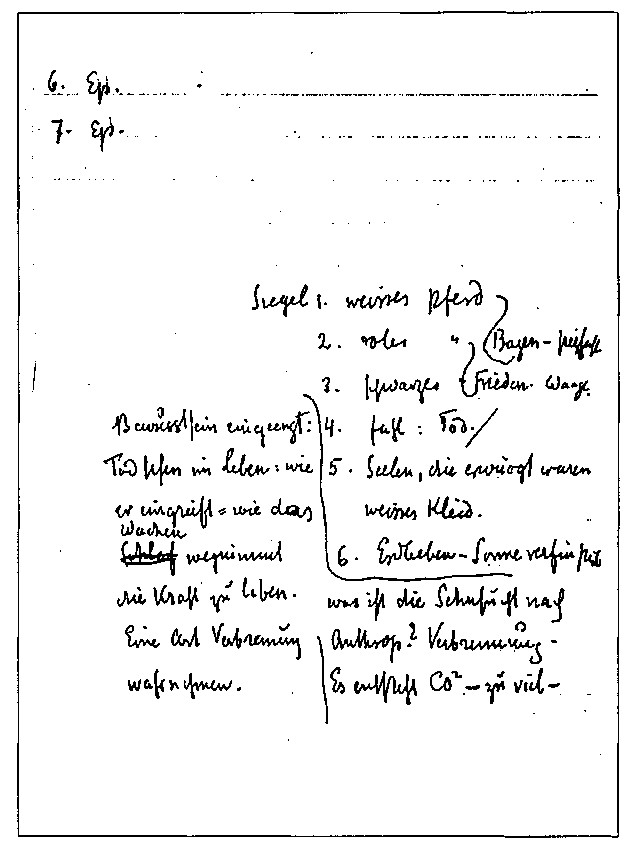 6. Ep.
7. Ep.
Siegel 1. weisses Pferd
2. rotes " Bogen -
3. schwarzes Frieden. Waage.
4. fahl : Tod.
5. Seelen, die erwürgt waren
weisses Kleid.
6. Erdbeben - Sonne verfinstert
was ist die Sehnsucht nach
Anthrop.? Verbrennung -
Es entsteht CO² - zu viel -
Bewusstsein eingeengt:
Tod sehen im Leben: wie
er eingreift = wie das
Wachen
Schlaf wegnimmt
die Kraft zu leben.
Eine Art Verbrennung
wahrnehmen.